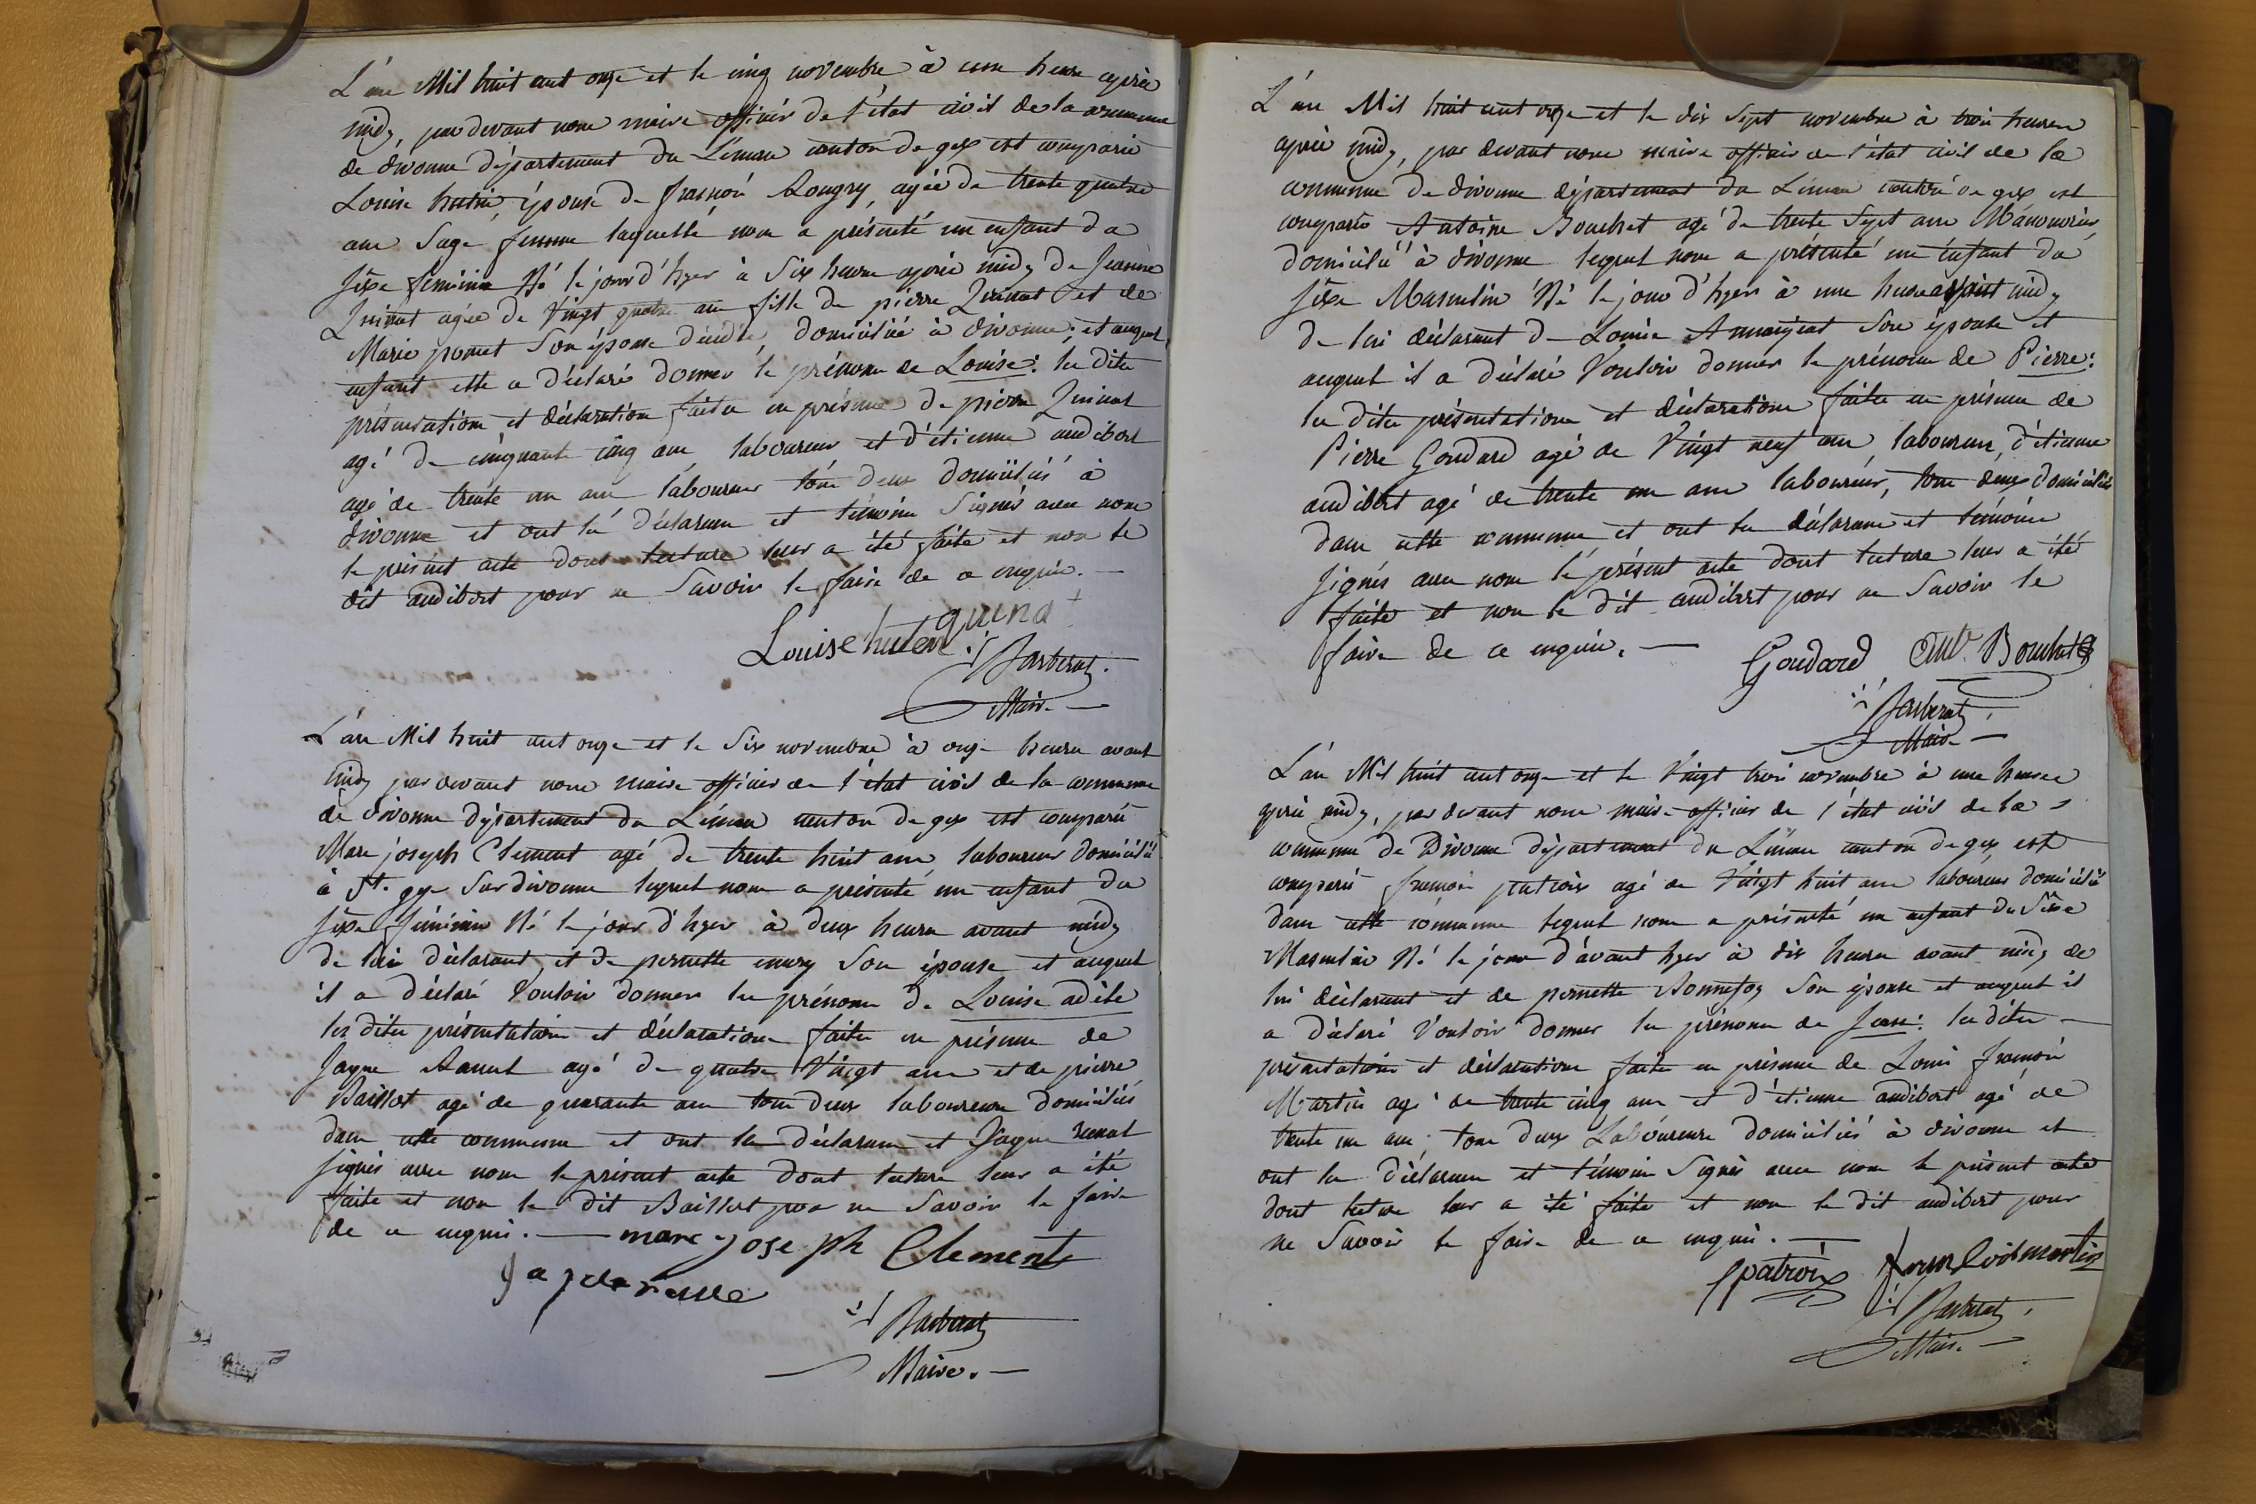 L'an Mil huit cent onze et le cinq novembre à une heure après
midy, par devant nous maire officier de l'état civil de la commune
de divonne département du Léman canton de gex est comparue
Louise hutin, épouse de françois Rougry, agée de trente quatre
ans Sage femme laquelle nous a présenté un enfant du
Sexe féminin Né le jour d'hyer à Six heures après midy de Jeanne
Quinat agée de Vingt quatre ans fille de pierre Quinat et de
Marie pomet Son épouse domiciliée à divonne; et auquel
enfant elle a déclaré donner le prénom de Louise: les dites
présentation et déclaration faites en présence de pierre Quinat
agé de cinquante cinq ans laboureur et d'étienne audibert
agé de trente un ans laboureur tous deux domiciliés à
divonne et ont les déclarans et témoins Signés avec nous
le présent acte dont lecture leur a été faite et non le
dit audibert pour ne Savoir le faire de ce enquis. —
Louise huten quinat
Barberat
Maire
L'an Mil huit cent onze et le Six novembre à onze heures avant
midy par devant nous maire officier de l'état civil de la commune
de divonne département du Léman canton de gex est comparu
Marc joseph Clement agé de trente huit ans laboureur domicilié
à St. gyx Sur divonne lequel nous a présenté un enfant du
Sexe féminin Né le jour d'hyer à deux heures avant midy
de lui déclarant, et de pernette emery Son épouse et auquel
il a déclaré Vouloir donner les prénoms de Louise adèle
les dites présentation et déclaration faites en présence de
Jaque Ravul agé de quatre Vingt ans et de pierre
Baillet agé de quarante ans tous deux laboureurs domiciliés
dans cette commune et ont les déclarans et Jaque
Signés avec nous le présent acte dont lecture leur a été
faite et non le dit Baillet pour ne Savoir le faire
de ce enquis. — marc joseph Clement
Barberat
Maire. —
L'an Mil huit cent onze et le dix Sept novembre à trois heures
après midy, par devant nous maire officier de l'état civil de la
commune de divonne département du Léman canton de gex est
comparu Antoine Bouchet agé de trente Sept ans Manouvrier
domicilié à divonne lequel nous a présenté un enfant du
Sexe Masculin Né le jour d'hyer à une heure après midy
de lui déclarant de Louise Son épouse et
auquel il a déclaré Vouloir donner le prénom de Pierre:
les dites présentation et déclaration faites en présence de
Pierre Goudard agé de Vingt neuf ans, laboureur, d'étienne
audibert agé de trente un ans laboureur, tous deux domiciliés
dans cette commune, et ont les déclarans et témoins
Signés avec nous le présent acte dont lecture leur a été
faite et non le dit audibert pour ne Savoir le
faire de ce enquis. —
Goudard Ant. Bouchet
Barberat
Maire —
L'an Mil huit cent onze et le Vingt trois novembre à une heure
après midy, par devant nous maire officier de l'état civil de la
commune de Divonne département du Léman canton de gex est
comparu françois patroix agé de Vingt huit ans laboureur domicilié
dans cette commune lequel nous a présenté un enfant du Sexe
Masculin Né le jour d'avant hyer à dix heures avant midy de
lui déclarant et de pernette Bonnefoy Son épouse et auquel il
a déclaré Vouloir donner le prénom de Jean: les dites —
présentation et déclaration faites en présence de Louis françois
Martin agé de trente cinq ans et d'étienne audibert agé de
trente un ans: tous deux Laboureurs domiciliés à divonne et
ont les déclarans et témoins Signés avec nous le présent acte
dont lecture leur a été faite et non le dit audibert pour
ne Savoir le faire de ce enquis. —
f patroix martin
Barberat
Maire —